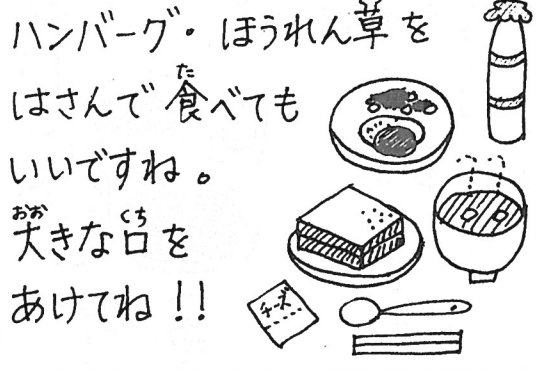 ハンバーグ・ほうれん草を
はさんで食べても
いいですね。
大きな口を
あけてね!!
チーズ